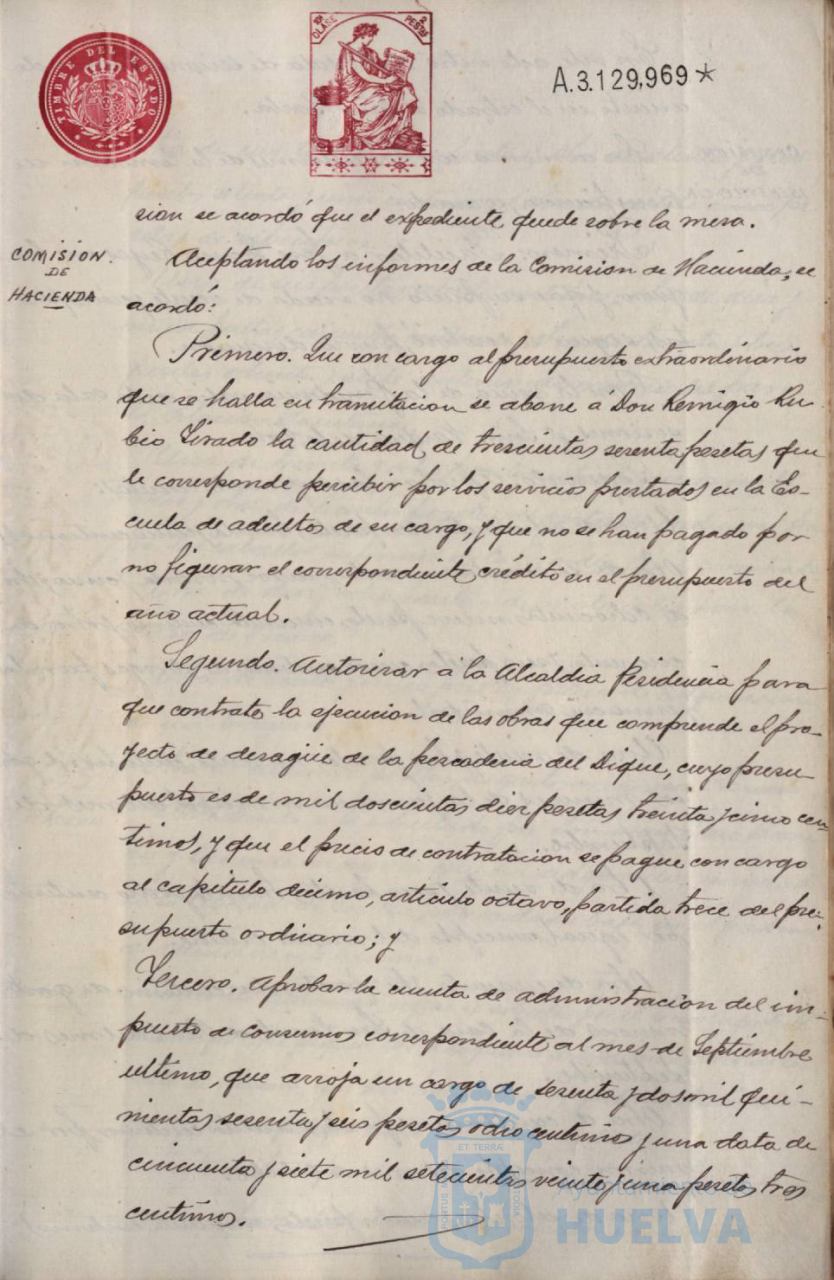 TIMBRE DEL ESTADO
10ª CLASE 2 PESTAS
A.3.129,969*
sion se acordó que el expediente quede sobre la mesa.
COMISION
DE
HACIENDA
Aceptando los informes de la Comision de Hacienda, se
acordó:
Primero. Que con cargo al presupuesto extraordinario
que se halla en tramitacion se abone á Don Remigio Ru-
bio Tirado la cantidad de trescientas sesenta pesetas que
le corresponde percibir por los servicios prestados en la Es-
cuela de adultos de su cargo, y que no se han pagado por
no figurar el correspondiente crédito en el presupuesto del
año actual.
Segundo. Autorizar á la Alcaldia Presidencia para
que contrate la ejecucion de las obras que comprende el pro-
yecto de desagüe de la pescaderia del Dique, cuyo presu-
puesto es de mil doscientas diez pesetas treinta y cinco cen
timos, y que el precio de contratacion se pague con cargo
al capitulo decimo, articulo octavo, partida trece del pre-
supuesto ordinario; y
Tercero. Aprobar la cuenta de administracion del im-
puesto de consumos correspondiente al mes de Septiembre
ultimo, que arroja un cargo de sesenta y dos mil qui-
nientas sesenta y seis pesetas ocho centimos y una data de
cincuenta y siete mil setecientas veinte y una pesetas tres
centimos.
ET TERRÆ
PORTUS CUSTODIA
Ayuntamiento de
HUELVA